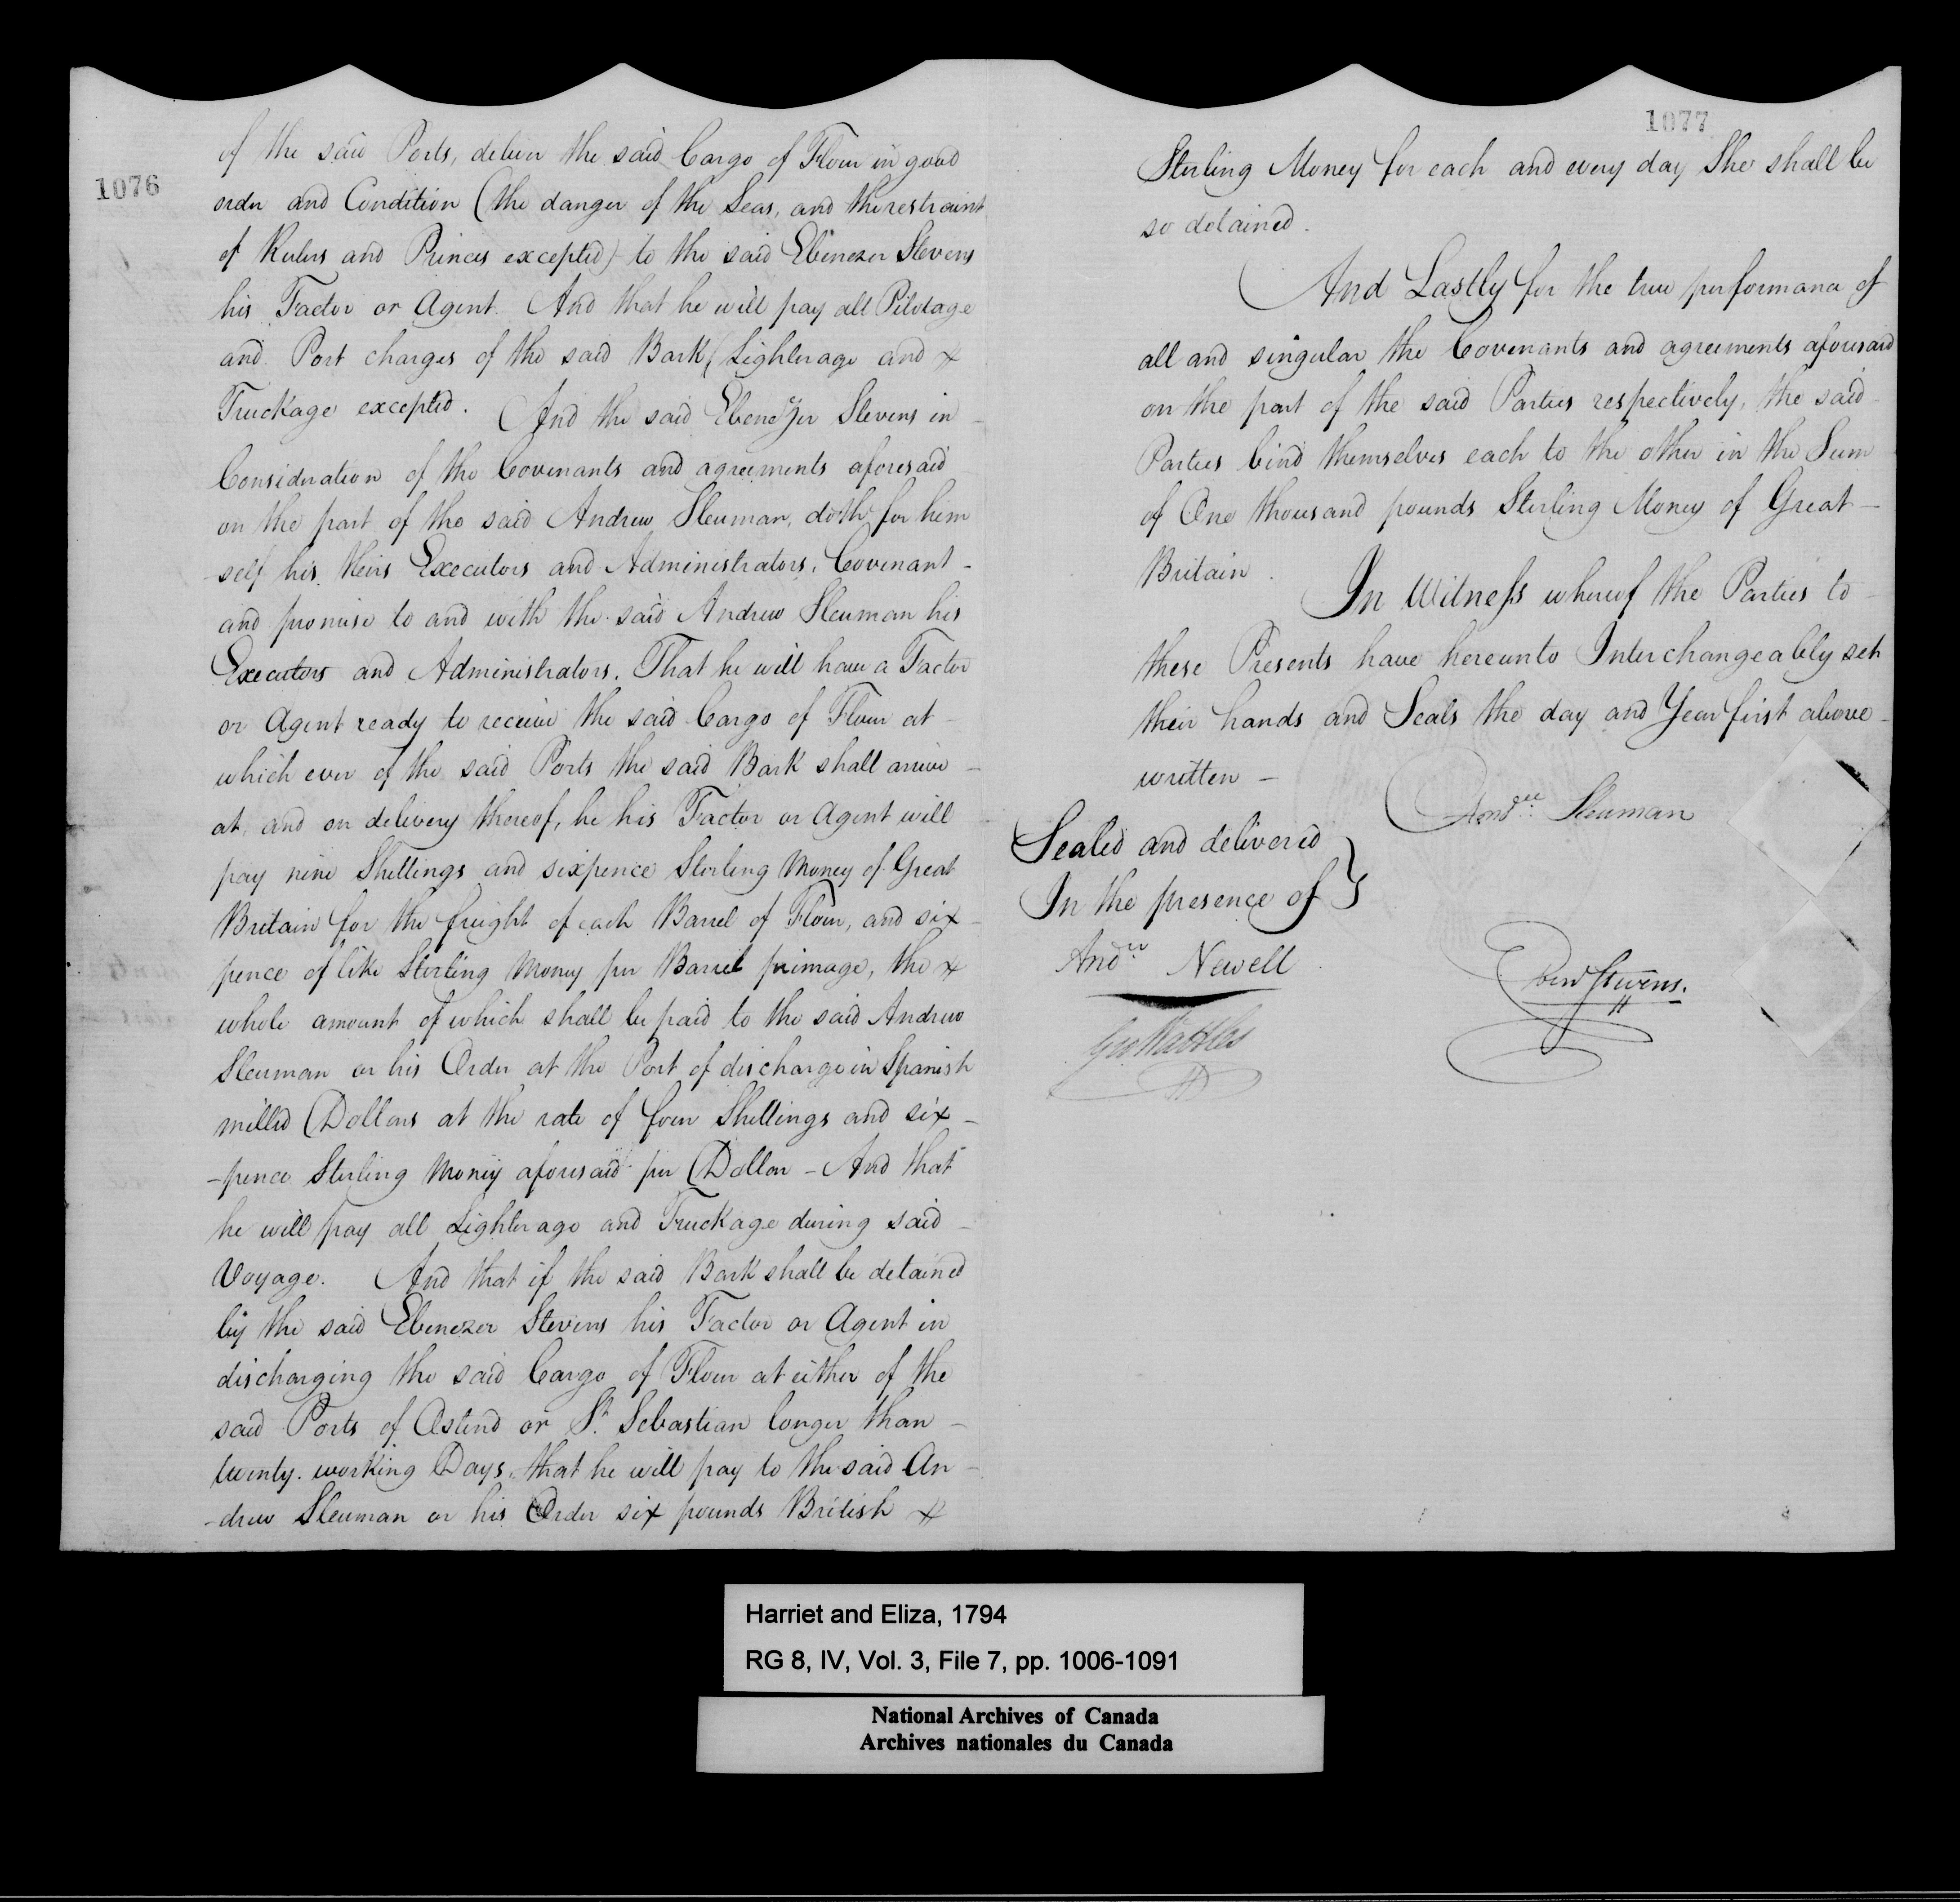 1076
of the said Ports, deliver the said Cargo of Flour in good
order and Condition (the danger of the Seas, and the restraint
of Rulers and Princes excepted) to the said Ebenezer Stevens
his Factor or Agent. And that he will pay all Pilotage
and Port charges of the said Bark, (Lighterage and
Truckage excepted. And the said Ebenezer Stevens in
Consideration of the Covenants and agreements aforesaid
on the part of the said Andrew Sleuman, doth for him
self his Heirs Executors and Administrators, Covenant -
and promise to and with the said Andrew Sleuman his
Executors and Administrators. That he will have a Factor
or Agent ready to receive the said Cargo of Flour at -
which ever of the said Ports the said Bark shall arrive -
at, and on delivery thereof, he his Factor or Agent will
pay nine Shillings and sixpence Sterling Money of Great
Britain for the freight of each Barrel of Flour, and six -
pence of like Sterling Money per Barrel primage, the
whole amount of which shall be paid to the said Andrew
Sleuman or his Order at the Port of discharge in Spanish
milled Dollars at the rate of four Shillings and six -
-pence Sterling Money aforesaid per Dollar - And that
he will pay all Lighterage and Truckage during said -
Voyage. And that if the said Bark shall be detained
by the said Ebenezer Stevens his Factor or Agent in
discharging the said Cargo of Flour at either of the
said Ports of Ostend or St. Sebastian longer than -
twenty working Days, that he will pay to the said An -
-drew Sleuman or his Order six pounds British
1077
Sterling Money for each and every day She shall be
so detained.
And Lastly for the true performance of
all and singular the Covenants and agreements aforesaid
on the part of the said Parties respectively, the said -
Parties bind themselves each to the other in the Sum
of One thousand pounds Sterling Money of Great -
Britain.
In Witness whereof the Parties to -
these Presents have hereunto Interchangeably set
their hands and Seals the day and Year first above -
written -
Andrew Sleuman
Sealed and delivered
In the presence of }
Andw Newell
Eben Stevens.
Geo Wattles
Harriet and Eliza, 1794
RG 8, IV, Vol. 3, File 7, pp. 1006-1091
National Archives of Canada
Archives nationales du Canada